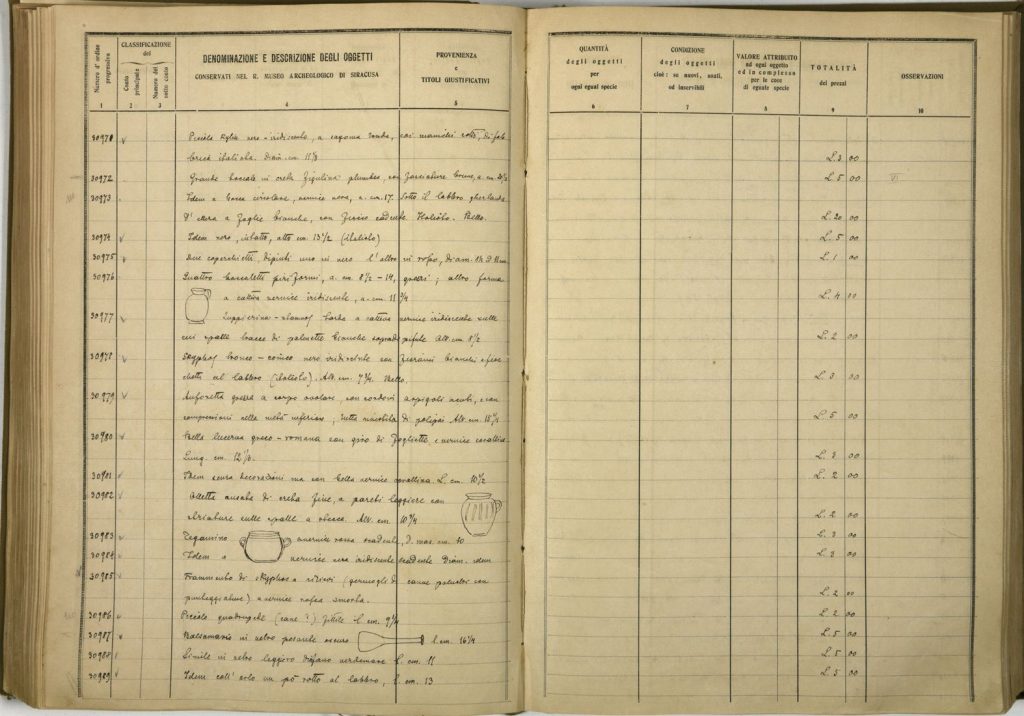 Numero d'ordine progressivo
CLASSIFICAZIONE
del
Conto principale
Numero del sotto conto
DENOMINAZIONE E DESCRIZIONE DEGLI OGGETTI
CONSERVATI NEL R. MUSEO ARCHEOLOGICO DI SIRACUSA
PROVENIENZA
e
TITOLI GIUSTIFICATIVI
QUANTITÀ
degli oggetti
per
ogni egual specie
CONDIZIONE
degli oggetti
cioè: se nuovi, usati,
od inservibili
VALORE ATTRIBUITO
ad ogni oggetto
ed in complesso
per le cose
di eguale specie
TOTALITÀ
dei prezzi
OSSERVAZIONI
1 2 3 4 5 6 7 8 9 10
30971 nero-iridiscente, a tonda, coi manichi rotti, di fab
brica italiota. Diam. cm. 11 L. 3 00
30972 Grande boccale in creta figulina plumbea, con fasciature brune, a. cm. L. 5 00 VI
30973 Idem a bocca circolare, vernice nera, a. cm. 17. Sotto il labbro ghirlanda
d'edera a foglie bianche, con cadente. Italiota. Bello. L. 20 00
30974 Idem nero, intatto, alto cm. 13 1/2 (italiota) L. 5 00
30975 Due coperchietti, dipinti uno in nero l'altro in rosso, diam. L. 1 00
30976 Quattro boccaletti piriformi, a. cm. 8 1/2 - 14, grezzi; altro forma
a cattiva vernice iridiscente, a. cm. 11 3/4 L. 4 00
30977 a cattiva vernice iridiscente sulle
cui spalle tracce di palmette bianche Alt. cm. 8 1/2 L. 2 00
30978 Skyphos tronco-conico nero iridiscente con bianchi e
al labbro (italiota). Alt. cm. 7 3/4. Bello. L. 3 00
30979 Anforetta grezza a corpo ovolare, con cordoni a spigoli acuti, e con
compressioni nella metà inferiore; tutta di polipai Alt. cm. L. 5 00
30980 Bella lucerna greco-romana con giro di fogliette, e vernice corallina
Lung. cm. 12 L. 3 00
30981 Idem senza decorazioni ma con bella vernice corallina. L. cm. 10 1/2 L. 2 00
30982 Olletta ansata di creta fine, a pareti leggiere con
striature sulle spalle a Alt. cm. 10 3/4 L. 2 00
30983 Tegamino a vernice rossa scadente, D. mas. cm. 10 L. 3 00
30984 Idem a vernice nera iridiscente scadente Diam. idem L. 3 00
30985 Frammento di skyphos a rilievi (germogli di canne palustri con
punteggiature) a vernice rossa smorta. L. 2 00
30986 Piccolo quadrupede (cane?) fittile l. cm. 9 L. 2 00
30987 Balsamario in vetro pesante oscuro l. cm. 16 L. 5 00
30988 Simile in vetro leggero diafano verdemare l. cm. 11 L. 5 00
30989 Idem coll'orlo un pò rotto al labbro, l. cm. 13 L. 5 00